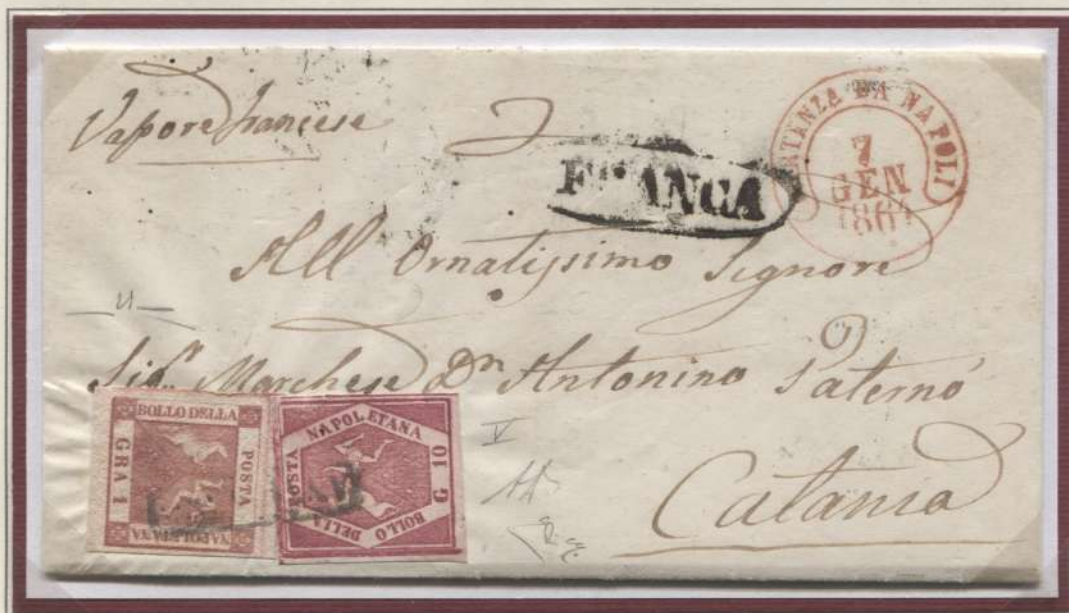 Vapore francese
PARTENZA DA NAPOLI
7
GEN
1861
FRANCA
All Ornatissimo Signore
Sigr. Marchese Dn Antonino Paternó
Catania
BOLLO DELLA
POSTA
NAPOLETANA
GRA 1
BOLLO DELLA
POSTA
NAPOLETANA
G 10